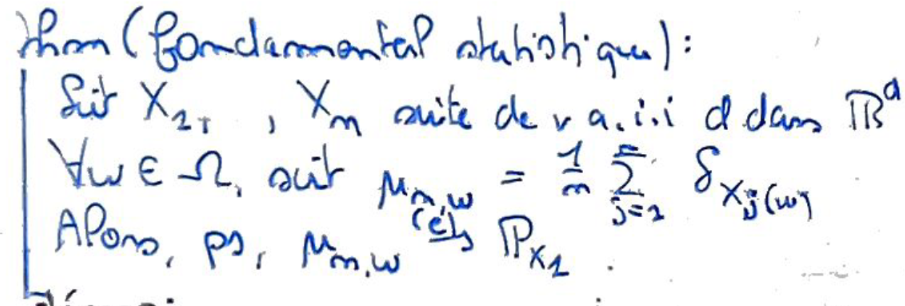 Thm (fondamental statistique) :
Soit X₁, , Xₙ suite de v a.i.i d dans ℝᵈ
∀ω ∈ Ω, soit μₙ,ω = 1/n Σⁿⱼ₌₁ δ_Xⱼ(ω)
Alors, ps, μₙ,ω (e)→ ℙ_X₁ .